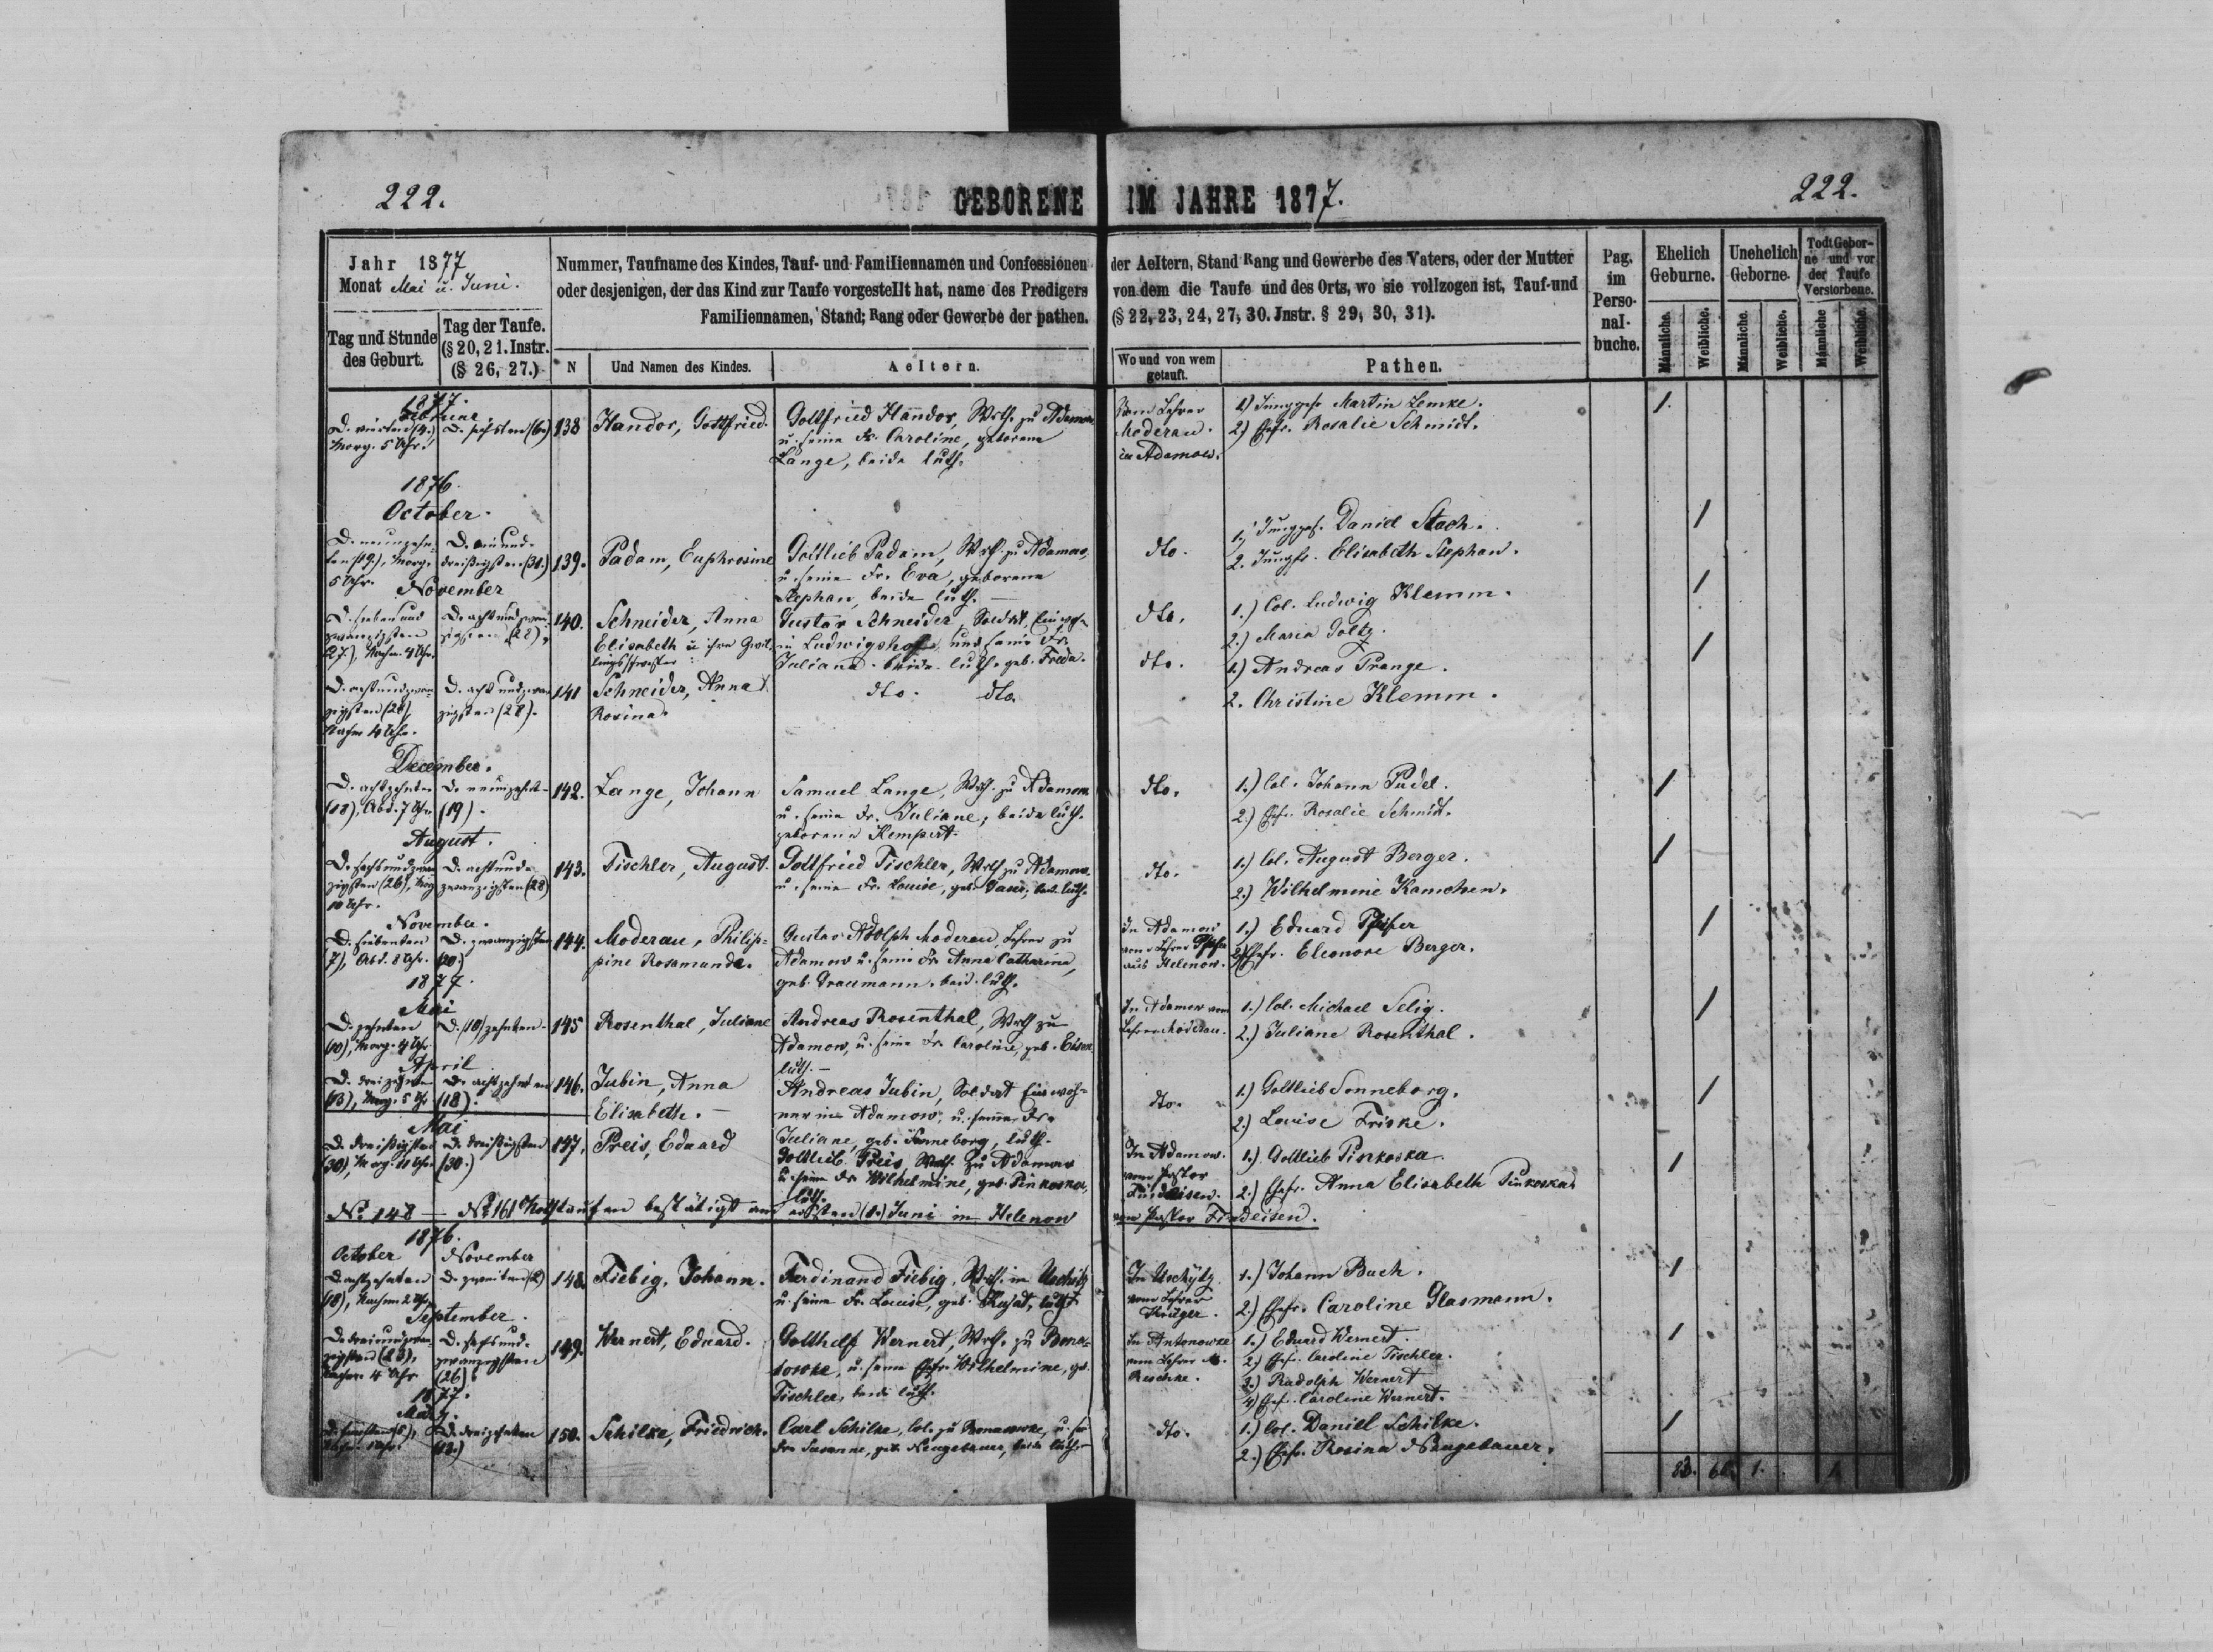 222.
GEBORENE IM JAHRE 1877.
222.
Jahr 1877
Monat Mai u. Juni.
Tag und Stunde des Geburt.
Tag der Taufe. (§ 20, 21. Instr. (§ 26, 27.)
Nummer, Taufname des Kindes, Tauf- und Familiennamen und Confessionen der Aeltern, Stand Rang und Gewerbe des Vaters, oder der Mutter
oder desjenigen, der das Kind zur Taufe vorgestellt hat, name des Predigers von dem die Taufe und des Orts, wo sie vollzogen ist, Tauf-und
Familiennamen, Stand; Rang oder Gewerbe der pathen. (§ 22, 23, 24, 27, 30. Jnstr. § 29, 30, 31).
N
Und Namen des Kindes.
Aeltern.
Wo und von wem getauft.
Pathen.
Pag. im Perso-nal-buche.
Ehelich Geburne.
Unehelich Geborne.
Todt Gebor-ne und vor der Taufe Verstorbene.
Männliche. Weibliche. Männliche. Weibliche. Männliche Weibliche.
1877.
Februar
D. vierten (4.) Morg. 5 Uhr.
D. sechsten (6.)
138
Handor, Gottfried.
Gottfried Handor, Wrth. zu Adamow
u. seine Fr. Caroline, geborene
Lange, beide luth.
Vom Lehrer
Moderau
in Adamow.
1.) Junggese. Martin Lemke.
2.) Ehefr. Rosalie Schmidt.
1.
1876.
October.
D. neunzehn-
ten (19.), Morg.
5 Uhr.
D. einund-
dreißigsten (31.)
139.
Padam, Euphrosine
Gottlieb Padam, Wrth. zu Adamow,
u. seine Fr. Eva, geborene
Stephan, beide luth.
dto.
1.) Junggs. Daniel Stach.
2. Jungfr. Elisabeth Stephan.
1
November
D. sieben und
zwanzigsten
(27.), Nachm. 4 Uhr.
D. achtundzwan-
zigsten (28),
140.
Schneider, Anna
Elisabeth u. ihre Zwil-
lingsschwester:
Gustav Schneider, Soldat, Einwohn.
in Ludwigshof und seine Fr.
Juliane beide luth. geb. Freda.
dto.
1.) Col. Ludwig Klemm.
2.) Maria Goltz.
1
D. achtundzwan-
zigsten (28),
Nachm 4 Uhr.
D. acht undzwan
zigsten (28).
141
Schneider, Anna
Rosina.
dto. dto.
dto.
1.) Andreas Prange.
2. Christine Klemm.
1
December.
D. achtzehnten
(18), Abd. 7 Uhr
D. neunzehnt-
(19).
142.
Lange, Johann
Samuel Lange, Wrth. zu Adamow
u. seine Fr. Juliane, beide luth.
geborene Kempert.
dto.
1.) Col. Johann Pudel.
2.) Ehefr. Rosalie Schmidt.
1
August.
D. sechsundzwan-
zigsten (26), Morg
10 Uhr.
D. achtund-
zwanzigsten (28)
143.
Tischler, August.
Gottfried Tischler, Wrth zu Adamow
u. seine Fr. Louise, geb. beid. luth.
dto.
1.) Col. August Berger.
2.) Wilhelmine Kamchen.
1
November.
D. siebenten
7), Abd. 8 Uhr.
D. zwanzigsten
(20.)
144.
Moderau, Philip-
pine Rosamunde.
Gustav Adolph Moderau, Lehrer zu
Adamow u. seine Fr. Anna Catharina,
geb. Draumann, beid. luth.
In Adamow
vom Lehrer
aus Helenow.
1.) Eduard Pfeifer
2.) Ehefr. Eleonore Berger.
1
1877.
Mai
D. zehnten
(10), Morg. 4 Uhr
D. (10) zehnten
145
Rosenthal, Juliane
Andreas Rosenthal, Wrth zu
Adamow, u. seine Fr. Caroline, geb.
luth.
In Adamow vom
Lehrer Moderau.
1.) Col. Michael Selig.
2.) Juliane Rosenthal.
1
April
D. dreizehnten
(13), Morg. 5 Uhr
D. achtzehnten
(18).
146.
Jubin, Anna
Elisabeth.
Andreas Jubin, Soldat Einwoh-
ner in Adamow, u. seine Fr.
Juliane, geb. Sonneborg, luth.
dto.
1.) Gottlieb Sonneborg.
2.) Louise Friske.
1
Mai
D. dreißigsten
(30), Morg. 11 Uhr
D. dreißigsten
(30.)
147.
Preis, Eduard
Gottlieb Preis, Wrth. zu Adamow
u. seine Fr Wilhelmine, geb. Pinkoska,
luth.
In Adamow.
vom Pastor
Findeisen.
1.) Gottlieb Pinkoska
2.) Ehefr. Anna Elisabeth Pinkoska
1
No. 148 — No. 161 Nothtaufen bestätigt am ersten (1.) Juni in Helenow vom Pastor Findeisen.
1876.
October
November
D. achtzehnten
(18), Nachm 2 Uhr
D. zweiten (2)
148.
Fiebig, Johann.
Ferdinand Fiebig, Wrth. in
u. seine Fr. Louise, geb. luth
vom Lehrer
Krüger.
1.) Johann Buch.
2.) Ehefr. Caroline Glasmann.
1
September.
D. dreiundzwan-
zigsten (23),
Nachm. 4 Uhr
D. sechsund-
zwanzigsten
(26)
149.
Wernert, Eduard.
Gotthelf Wernert, Wrth. zu
u. seine Ehefr. Wilhelmine, geb.
Tischler, beide luth.
In Antonowke
vom Lehrer M.
Reschke.
1.) Eduard Wernert.
2.) Ehefr. Caroline Tischler.
3.) Rudolph Wernert
4.) Ehef. Caroline Wernert.
1
1877.
März.
D. fünften (5),
D. dreizehnten
(13.)
150.
Schilke, Friedrich.
Carl Schilke, Col. zu Romanowke, u. sei
Fr. Susanne, geb. Neugebauer, beide luth.
dto.
1.) Col. Daniel Schilke.
2.) Ehefr. Rosina Neugebauer.
1